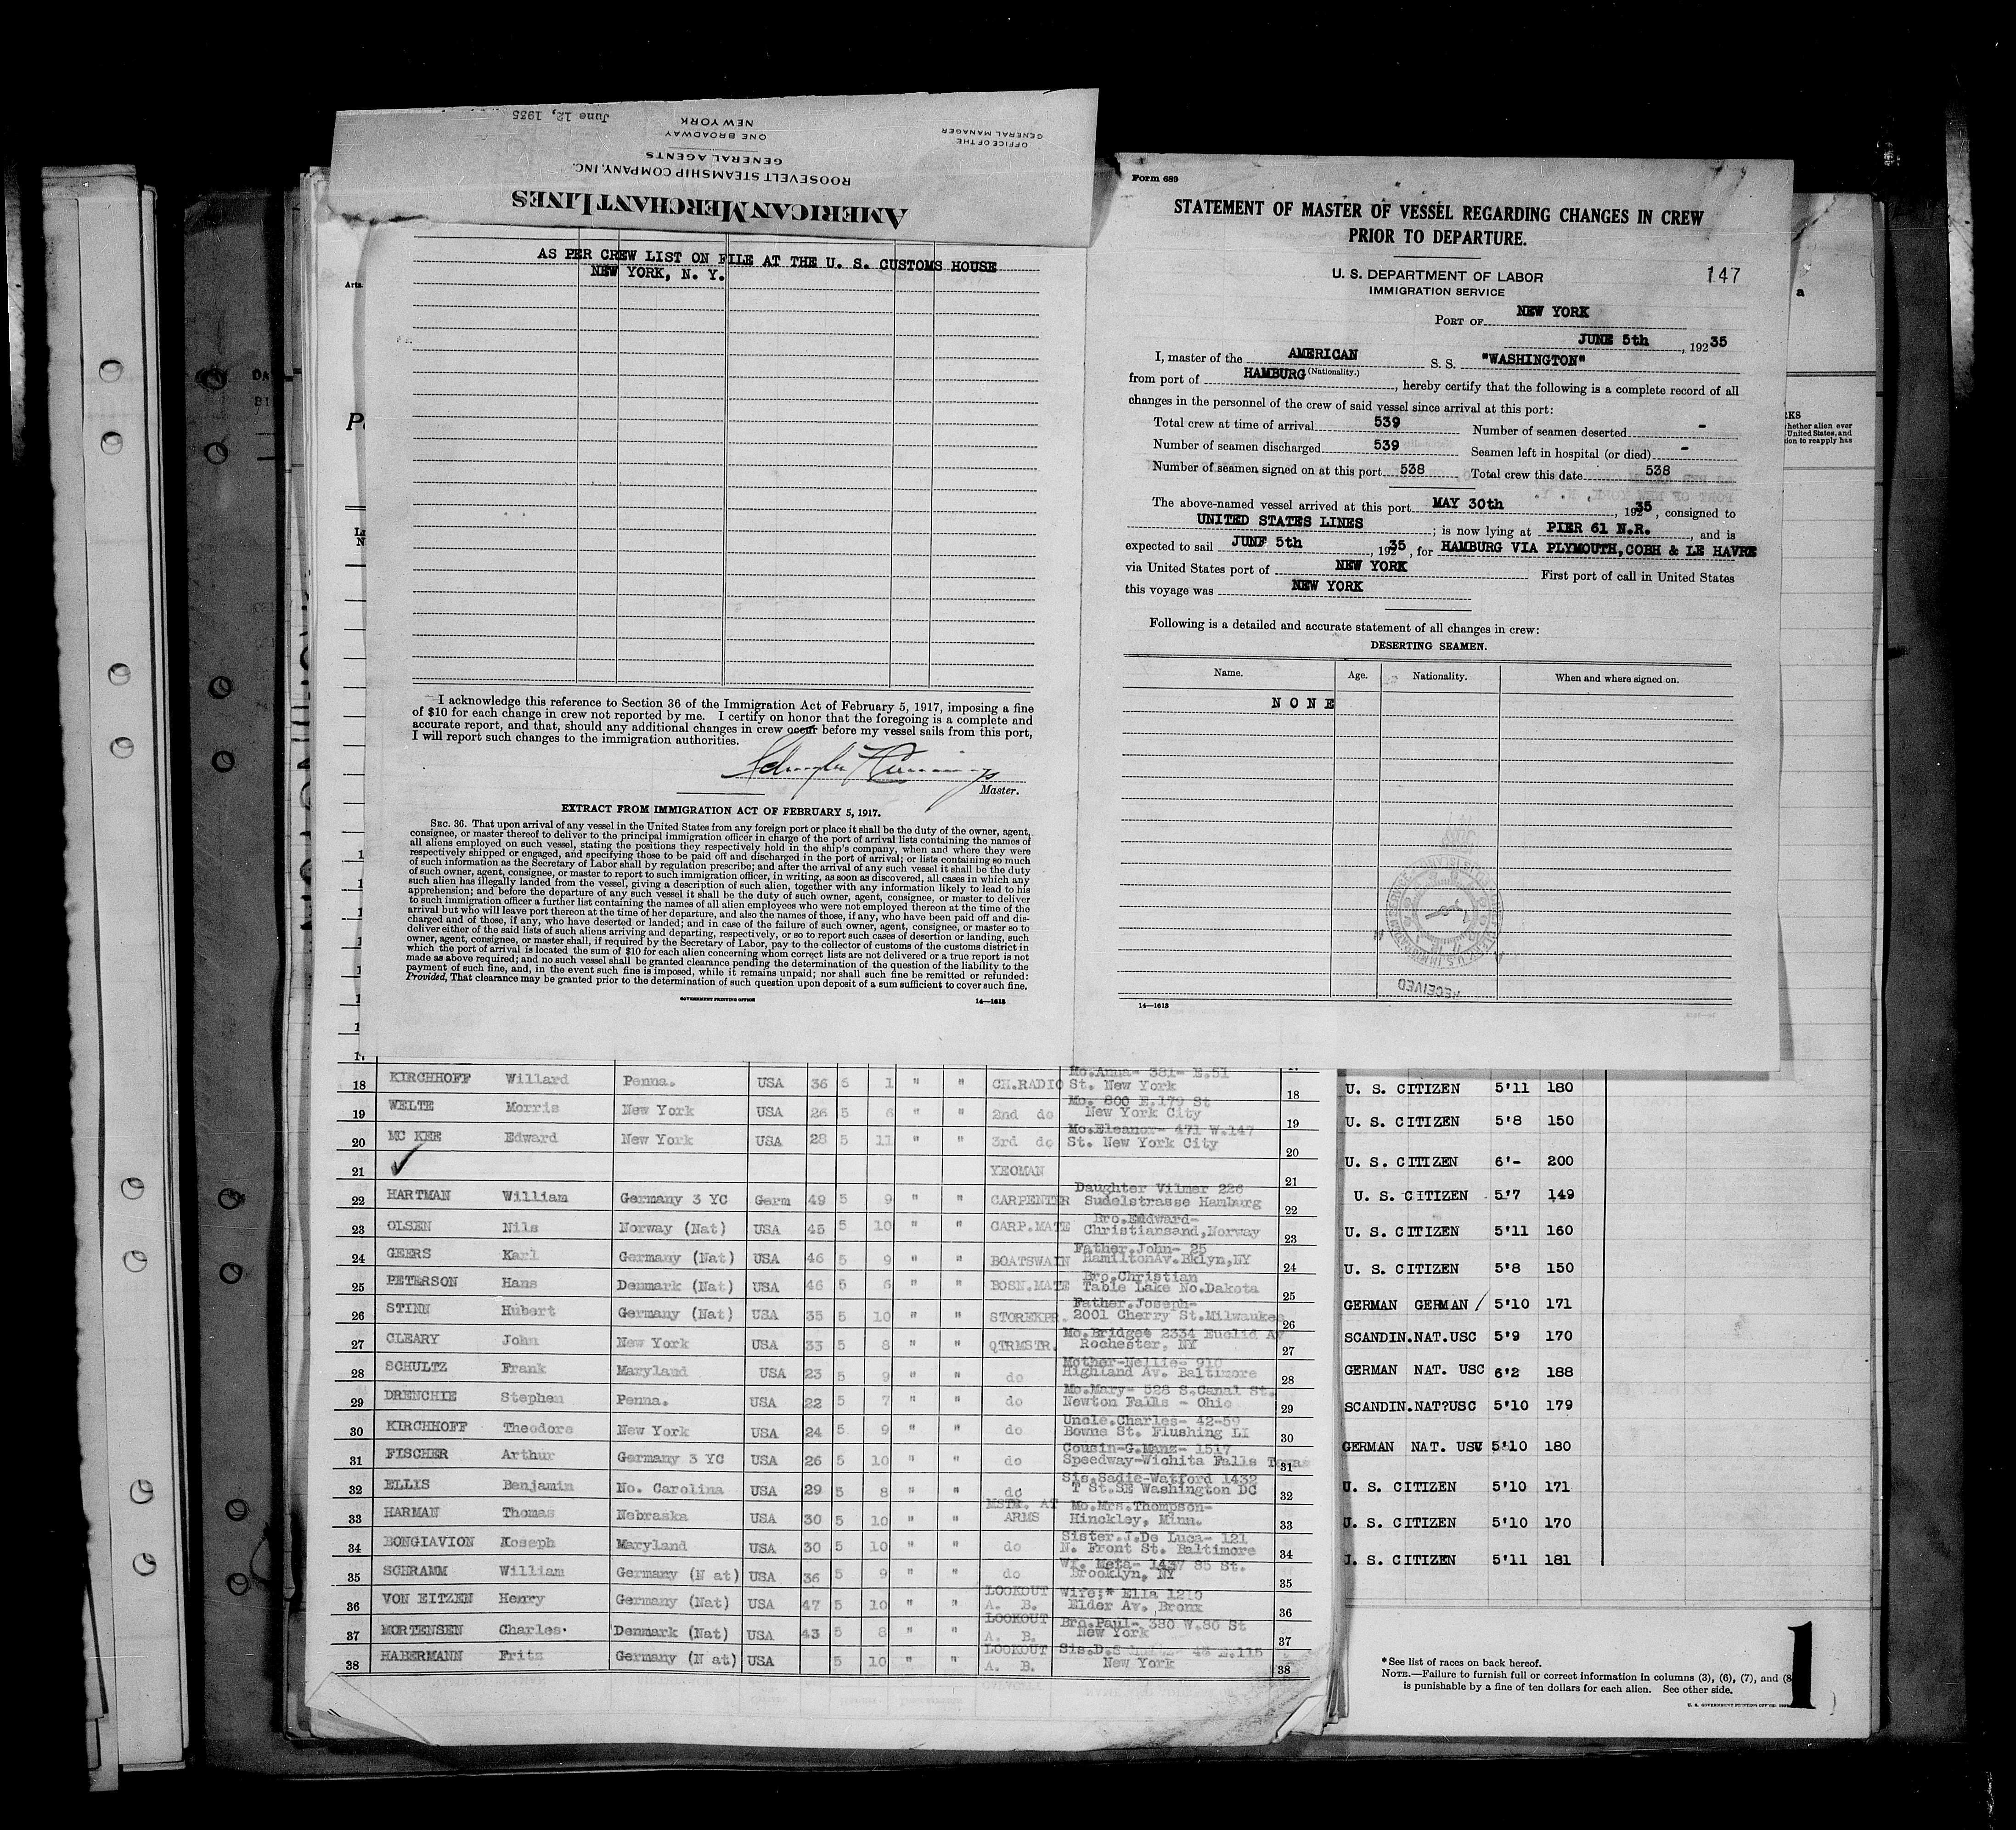 June 12, 1935
OFFICE OF THE
GENERAL MANAGER
NEW YORK
ONE BROADWAY
GENERAL AGENTS
ROOSEVELT STEAMSHIP COMPANY, INC.
AMERICAN MERCHANT LINES
AS PER CREW LIST ON FILE AT THE U. S. CUSTOMS HOUSE
NEW YORK, N. Y.
I acknowledge this reference to Section 36 of the Immigration Act of February 5, 1917, imposing a fine
of $10 for each change in crew not reported by me. I certify on honor that the foregoing is a complete and
accurate report, and that, should any additional changes in crew occur before my vessel sails from this port,
I will report such changes to the immigration authorities.
Master.
EXTRACT FROM IMMIGRATION ACT OF FEBRUARY 5, 1917.
SEC. 36. That upon arrival of any vessel in the United States from any foreign port or place it shall be the duty of the owner, agent,
consignee, or master thereof to deliver to the principal immigration officer in charge of the port of arrival lists containing the names of
all aliens employed on such vessel, stating the positions they respectively hold in the ship's company, when and where they were
respectively shipped or engaged, and specifying those to be paid off and discharged in the port of arrival; or lists containing so much
of such information as the Secretary of Labor shall by regulation prescribe; and after the arrival of any such vessel it shall be the duty
of such owner, agent, consignee, or master to report to such immigration officer, in writing, as soon as discovered, all cases in which any
such alien has illegally landed from the vessel, giving a description of such alien, together with any information likely to lead to his
apprehension; and before the departure of any such vessel it shall be the duty of such owner, agent, consignee, or master to deliver
to such immigration officer a further list containing the names of all alien employees who were not employed thereon at the time of the
arrival but who will leave port thereon at the time of her departure, and also the names of those, if any, who have been paid off and dis-
charged and of those, if any, who have deserted or landed; and in case of the failure of such owner, agent, consignee, or master so to
deliver either of the said lists of such aliens arriving and departing, respectively, or so to report such cases of desertion or landing, such
owner, agent, consignee, or master shall, if required by the Secretary of Labor, pay to the collector of customs of the customs district in
which the port of arrival is located the sum of $10 for each alien concerning whom correct lists are not delivered or a true report is not
made as above required; and no such vessel shall be granted clearance pending the determination of the question of the liability to the
payment of such fine, and, in the event such fine is imposed, while it remains unpaid; nor shall such fine be remitted or refunded:
Provided, That clearance may be granted prior to the determination of such question upon deposit of a sum sufficient to cover such fine.
GOVERNMENT PRINTING OFFICE 14—1613
Form 689
STATEMENT OF MASTER OF VESSEL REGARDING CHANGES IN CREW
PRIOR TO DEPARTURE.
U. S. DEPARTMENT OF LABOR
IMMIGRATION SERVICE
147
PORT OF NEW YORK
JUNE 5th, 192 35
I, master of the AMERICAN S. S. "WASHINGTON"
(Nationality.)
from port of HAMBURG, hereby certify that the following is a complete record of all
changes in the personnel of the crew of said vessel since arrival at this port:
Total crew at time of arrival 539 Number of seamen deserted -
Number of seamen discharged 539 Seamen left in hospital (or died) -
Number of seamen signed on at this port 538 Total crew this date 538
The above-named vessel arrived at this port MAY 30th, 192 35, consigned to
UNITED STATES LINES; is now lying at PIER 61 N.R., and is
expected to sail JUNE 5th, 192 35, for HAMBURG VIA PLYMOUTH, COBH & LE HAVRE
via United States port of NEW YORK First port of call in United States
this voyage was NEW YORK
Following is a detailed and accurate statement of all changes in crew:
DESERTING SEAMEN.
Name. Age. Nationality. When and where signed on.
N O N E
RECEIVED
14—1613
18 KIRCHHOFF Willard Penna. USA 36 5 1 " " CH.RADIO Mo.Anna- 381- E.51 St. New York 18
19 WELTE Morris New York USA 26 5 6 " " 2nd do Mo. 800 E.179 St New York City 19
20 MC KEE Edward New York USA 28 5 11 " " 3rd do Mo.Eleanor- 471 W.147 St. New York City 20
21 YEOMAN 21
22 HARTMAN William Germany 3 YC Germ 49 5 9 " " CARPENTER Daughter Vilmer 226 Sudelstrasse Hamburg 22
23 OLSEN Nils Norway (Nat) USA 45 5 10 " " CARP.MATE Bro.Emdward- Christiansand,Norway 23
24 GEERS Karl Germany (Nat) USA 46 5 9 " " BOATSWAIN Father.John- 25 HamiltonAv.Bklyn,NY 24
25 PETERSON Hans Denmark (Nat) USA 46 5 6 " " BOSN.MATE Bro.Christian Table Lake No.Dakota 25
26 STINN Hubert Germany (Nat) USA 35 5 10 " " STOREKPR. Father.Joseph- 2001 Cherry St.Milwaukee 26
27 CLEARY John New York USA 33 5 8 " " QTRMSTR. Mo.Bridget 2334 Euclid Av Rochester, NY 27
28 SCHULTZ Frank Maryland USA 23 5 9 " " do Mother-Nellie- 910 Highland Av. Baltimore 28
29 DRENCHIE Stephen Penna. USA 22 5 7 " " do Mo.Mary- 528 S.Canal St. Newton Falls - Ohio 29
30 KIRCHHOFF Theodore New York USA 24 5 9 " " do Uncle.Charles- 42-59 Bowne St. Flushing LI 30
31 FISCHER Arthur Germany 3 YC USA 26 5 10 " " do Cousin-G.Manz- 1517 Speedway-Wichita Falls Texas 31
32 ELLIS Benjamin No. Carolina USA 29 5 8 " " do Sis.Sadie-Watford 1432 T St.SE Washington DC 32
33 HARMAN Thomas Nebraska USA 30 5 10 " " MSTR. AT ARMS Mo.Mrs.Thompson- Hinckley, Minn. 33
34 BONGIAVION Koseph Maryland USA 30 5 10 " " do Sister.J.De Luca- 121 N. Front St. Baltimore 34
35 SCHRAMM William Germany (N at) USA 36 5 9 " " do Wf. Meta- 1437 85 St. Brooklyn, NY 35
36 VON EITZEN Henry Germany (Nat) USA 47 5 10 " " LOOKOUT A. B. Wife;* Ella 1210 Elder Av. Bronx 36
37 MORTENSEN Charles. Denmark (Nat) USA 43 5 8 " " LOOKOUT A. B. Bro.Paul- 380 W.86 St New York 37
38 HABERMANN Fritz Germany (N at) USA 5 10 " " LOOKOUT A. B. Sis.D. E.115 New York 38
U. S. CITIZEN 5'11 180
U. S. CITIZEN 5'8 150
U. S. CITIZEN 6'- 200
U. S. CITIZEN 5'7 149
U. S. CITIZEN 5'11 160
U. S. CITIZEN 5'8 150
GERMAN GERMAN / 5'10 171
SCANDIN.NAT.USC 5'9 170
GERMAN NAT. USC 6'2 188
SCANDIN.NAT?USC 5'10 179
GERMAN NAT. USC 5'10 180
U. S. CITIZEN 5'10 171
U. S. CITIZEN 5'10 170
U. S. CITIZEN 5'11 181
*See list of races on back hereof.
NOTE.—Failure to furnish full or correct information in columns (3), (6), (7), and (8
is punishable by a fine of ten dollars for each alien. See other side.
1